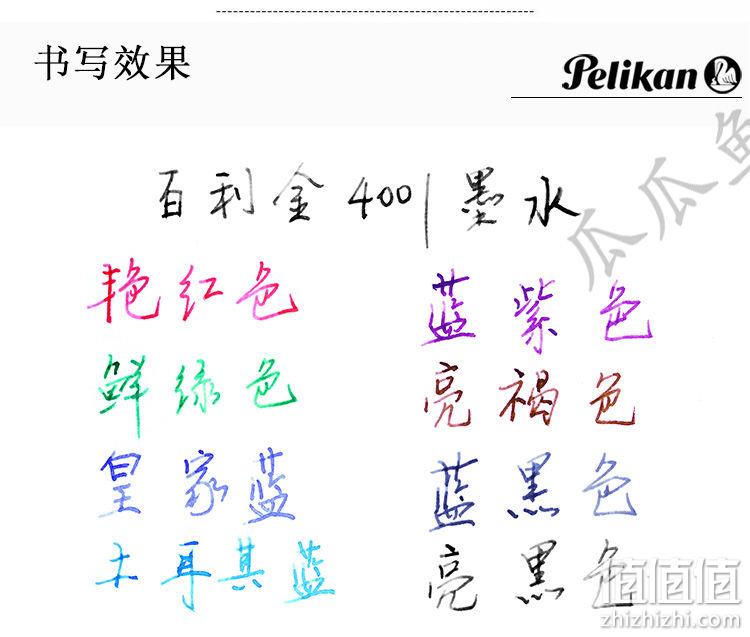 书写效果
Pelikan
百利金4001墨水
艳红色 蓝紫色
鲜绿色 亮褐色
皇家蓝 蓝黑色
土耳其蓝 亮黑色
瓜瓜鱼
值值值
zhizhizhi.com